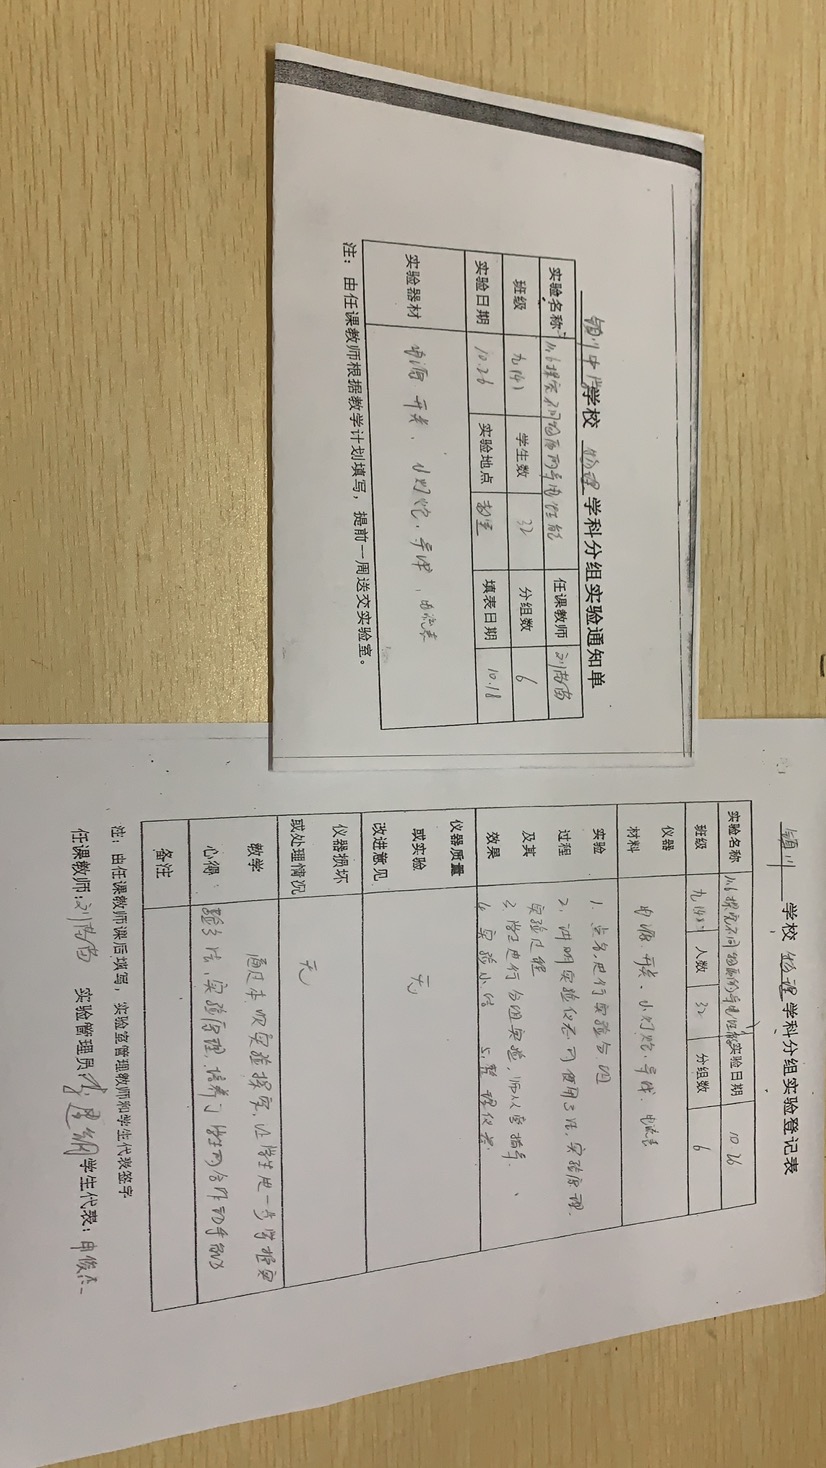 颍川中学学校 物理 学科分组实验通知单
实验名称 11.6探究不同物质的导电性能 任课教师
班级 九(4) 学生数 32 分组数 6
实验日期 10.26 实验地点 填表日期 10.18
实验器材 电源、开关、小灯泡、导线、电流表
注：由任课教师根据教学计划填写，提前一周送交实验室。
颍川 学校 物理 学科分组实验登记表
实验名称 11.6探究不同物质的导电性能 实验日期 10.26
班级 人数 32 分组数 6
仪器材料 电源、开关、小灯泡、导线、电流表
实验过程及其效果
1、点名，进行实验分组
2、讲明实验仪器的使用方法，实验原理、
实验过程
3、学生进行分组实验，师从旁指导、
4、实验小结 5、整理仪器
仪器质量或实验改进意见 无
仪器损坏或处理情况 无
教学心得：通过本次实验探究，让学生进一步掌握实
验方法，实验原理，培养了学生的合作动手能力
备注
注：由任课教师课后填写，实验室管理教师和学生代表签字
任课教师： 实验管理员： 学生代表：